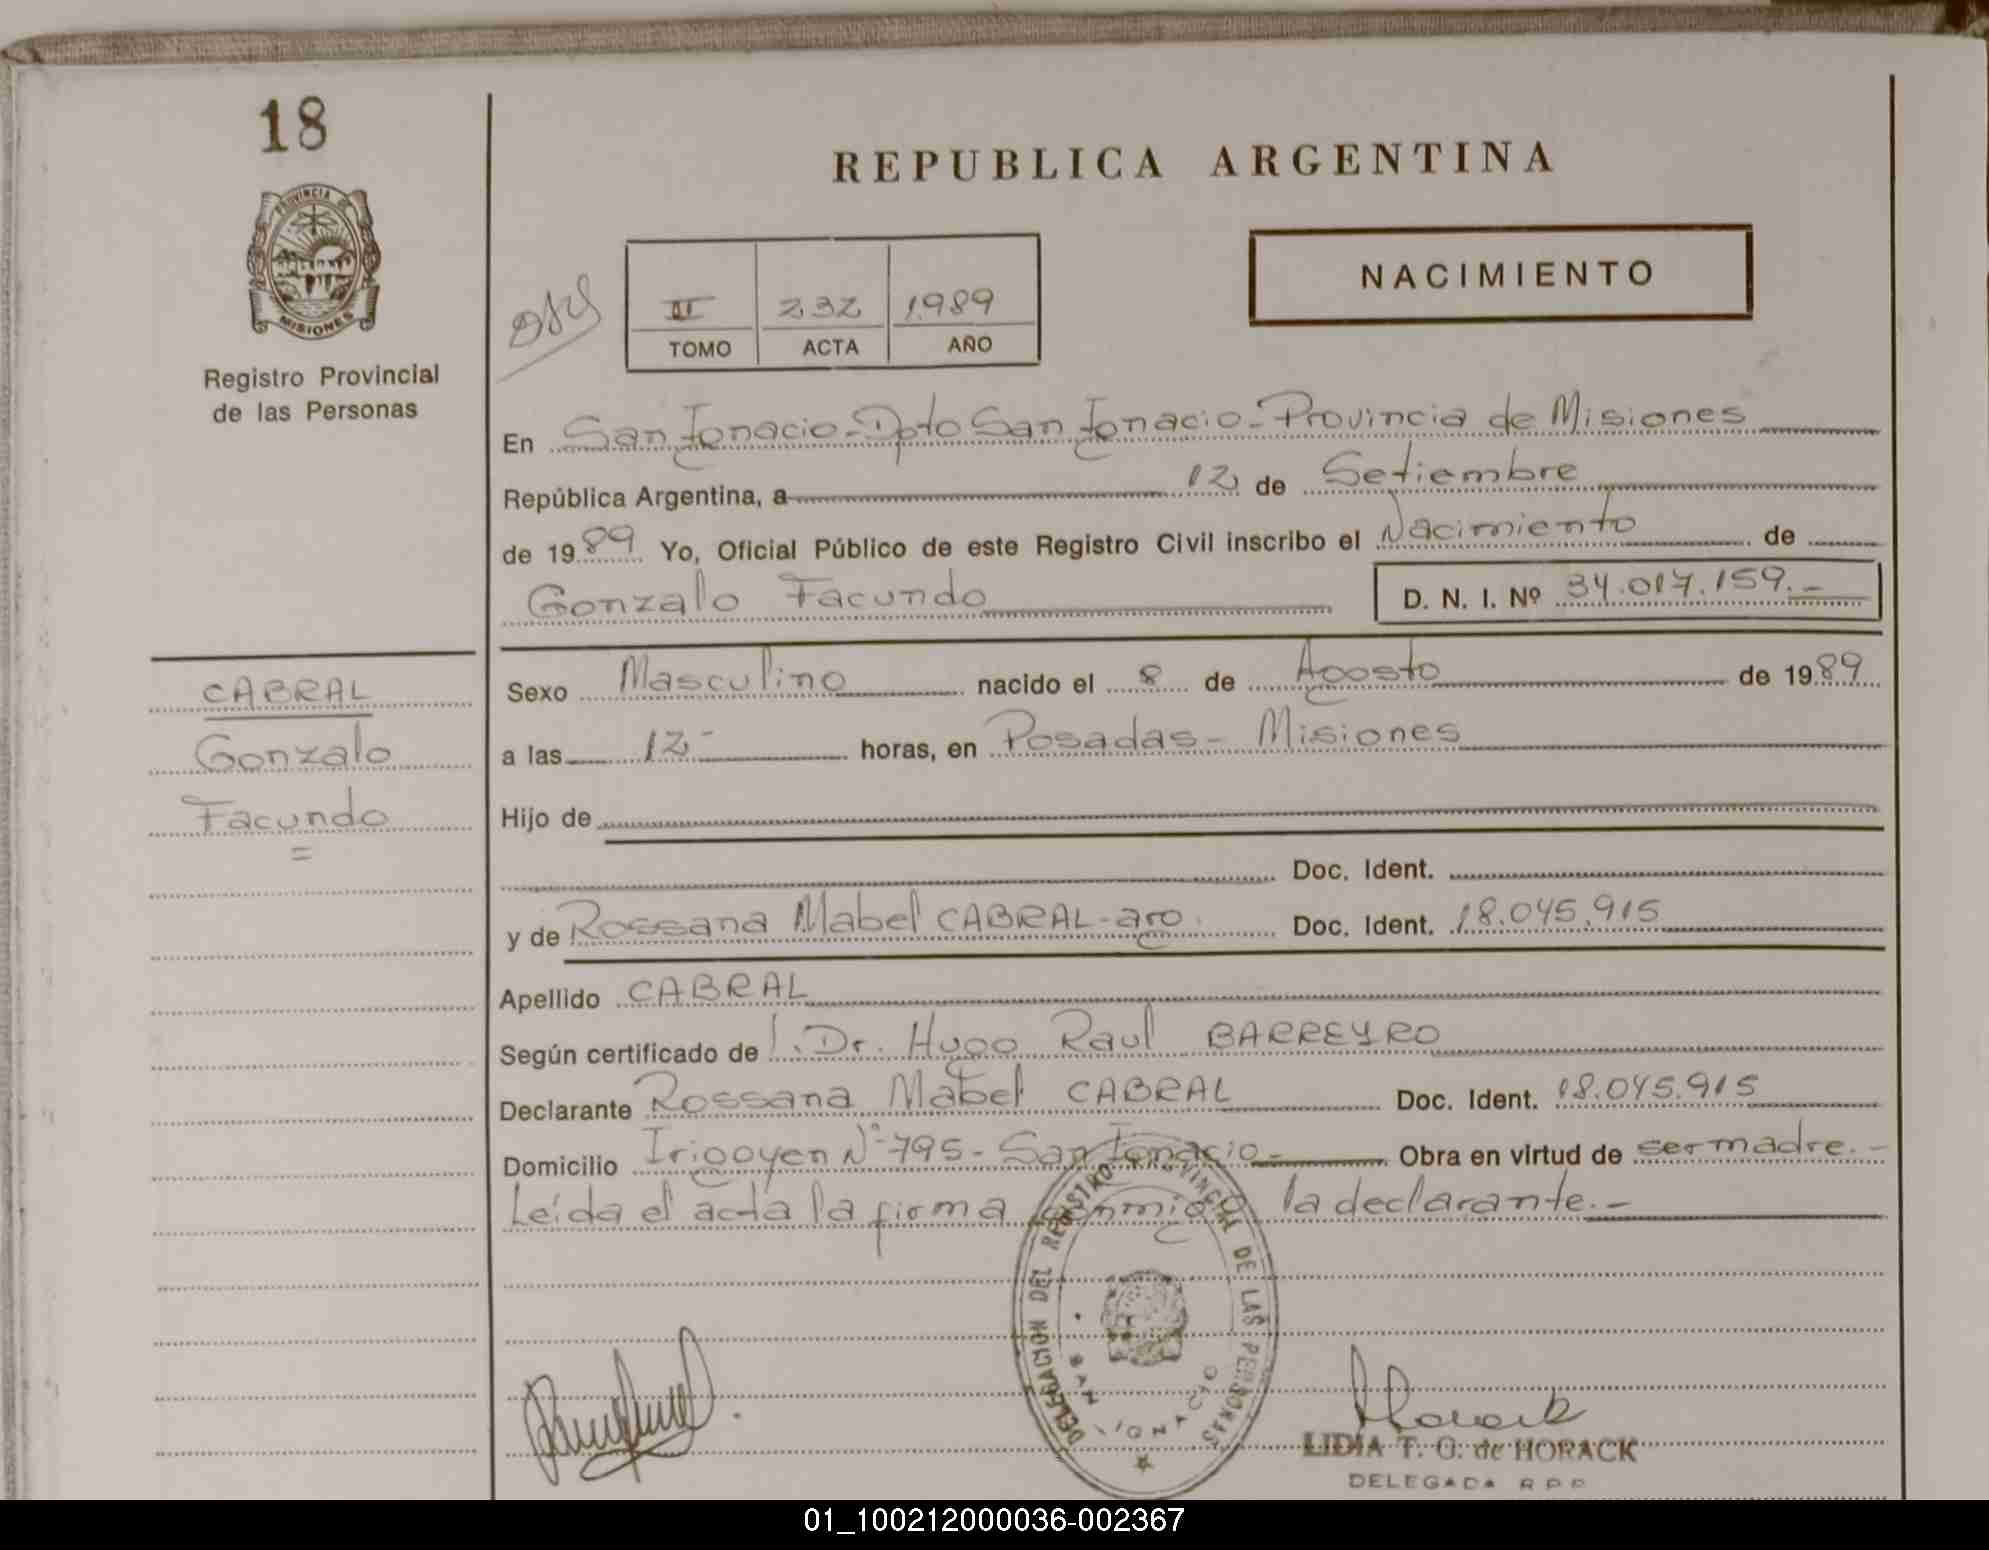 18
PROVINCIA DE
MISIONES
Registro Provincial
de las Personas
REPUBLICA ARGENTINA
NACIMIENTO
II 232 1989
TOMO ACTA AÑO
En San Ignacio-Dpto San Ignacio-Provincia de Misiones
República Argentina, a 12 de Setiembre
de 1989 Yo, Oficial Público de este Registro Civil inscribo el Nacimiento de
Gonzalo Facundo D. N. I. Nº 34.017.159.-
CABRAL
Gonzalo
Facundo
=
Sexo Masculino nacido el 8 de Agosto de 1989
a las 12- horas, en Posadas- Misiones
Hijo de
Doc. Ident.
y de Rossana Mabel CABRAL-arg. Doc. Ident. 18.045.915
Apellido CABRAL
Según certificado de Dr. Hugo Raul BARREYRO
Declarante Rossana Mabel CABRAL Doc. Ident. 18.045.915
Domicilio Irigoyen Nº 795- San Ignacio- Obra en virtud de ser madre.-
Leída el acta la firma conmigo la declarante.-
DELEGACION DEL REGISTRO PROVINCIAL DE LAS PERSONAS
SAN IGNACIO
Horack
LIDIA T. O. de HORACK
DELEGADA R P P
01_100212000036-002367